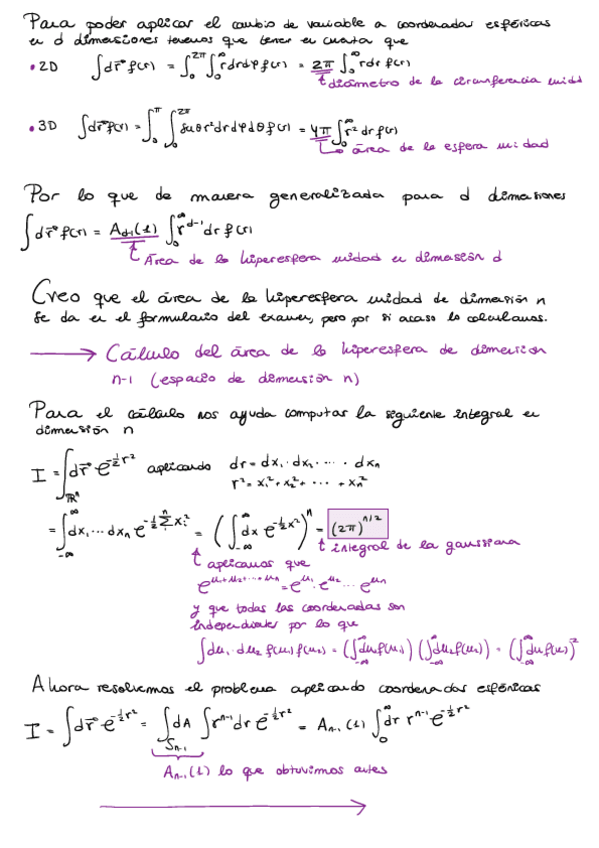 Para poder aplicar el cambio de variable a coordenadas esféricas
en d dimensiones tenemos que tener en cuenta que
• 2D ∫dr⃗ f(r) = ∫₀^{2π}∫₀^∞ r dr dφ f(r) = 2π ∫₀^∞ r dr f(r)
diámetro de la circunferencia unidad
• 3D ∫dr⃗ f(r) = ∫₀^π ∫₀^{2π} senθ r² dr dφ dθ f(r) = 4π ∫₀^∞ r² dr f(r)
área de la esfera unidad
Por lo que de manera generalizada para d dimensiones
∫dr⃗ f(r) = A_{d-1}(1) ∫₀^∞ r^{d-1} dr f(r)
Área de la hiperesfera unidad en dimensión d
Creo que el área de la hiperesfera unidad de dimensión n
se da en el formulario del examen, pero por si acaso lo calculamos.
→ Cálculo del área de la hiperesfera de dimensión
n-1 (espacio de dimensión n)
Para el cálculo nos ayuda computar la siguiente integral en
dimensión n
I = ∫_{ℝⁿ} dr⃗ e^{-½r²} aplicando dr = dx₁ · dx₂ · ... · dxₙ
r² = x₁² + x₂² + ... + xₙ²
= ∫_{-∞}^∞ dx₁ ... dxₙ e^{-½Σxᵢ²} = (∫_{-∞}^∞ dx e^{-½x²})ⁿ = (2π)^{n/2}
integral de la gaussiana
aplicamos que
e^{u₁+u₂+...+uₙ} = e^{u₁} · e^{u₂} ... e^{uₙ}
y que todas las coordenadas son
independientes por lo que
∫du₁ · du₂ f(u₁) f(u₂) = (∫_{-∞}^∞ du₁ f(u₁)) (∫_{-∞}^∞ du₂ f(u₂)) = (∫_{-∞}^∞ du f(u))²
Ahora resolvemos el problema aplicando coordenadas esféricas
I = ∫dr⃗ e^{-½r²} = ∫_{S_{n-1}} dA ∫r^{n-1} dr e^{-½r²} = A_{n-1}(1) ∫₀^∞ dr r^{n-1} e^{-½r²}
A_{n-1}(1) lo que obtuvimos antes